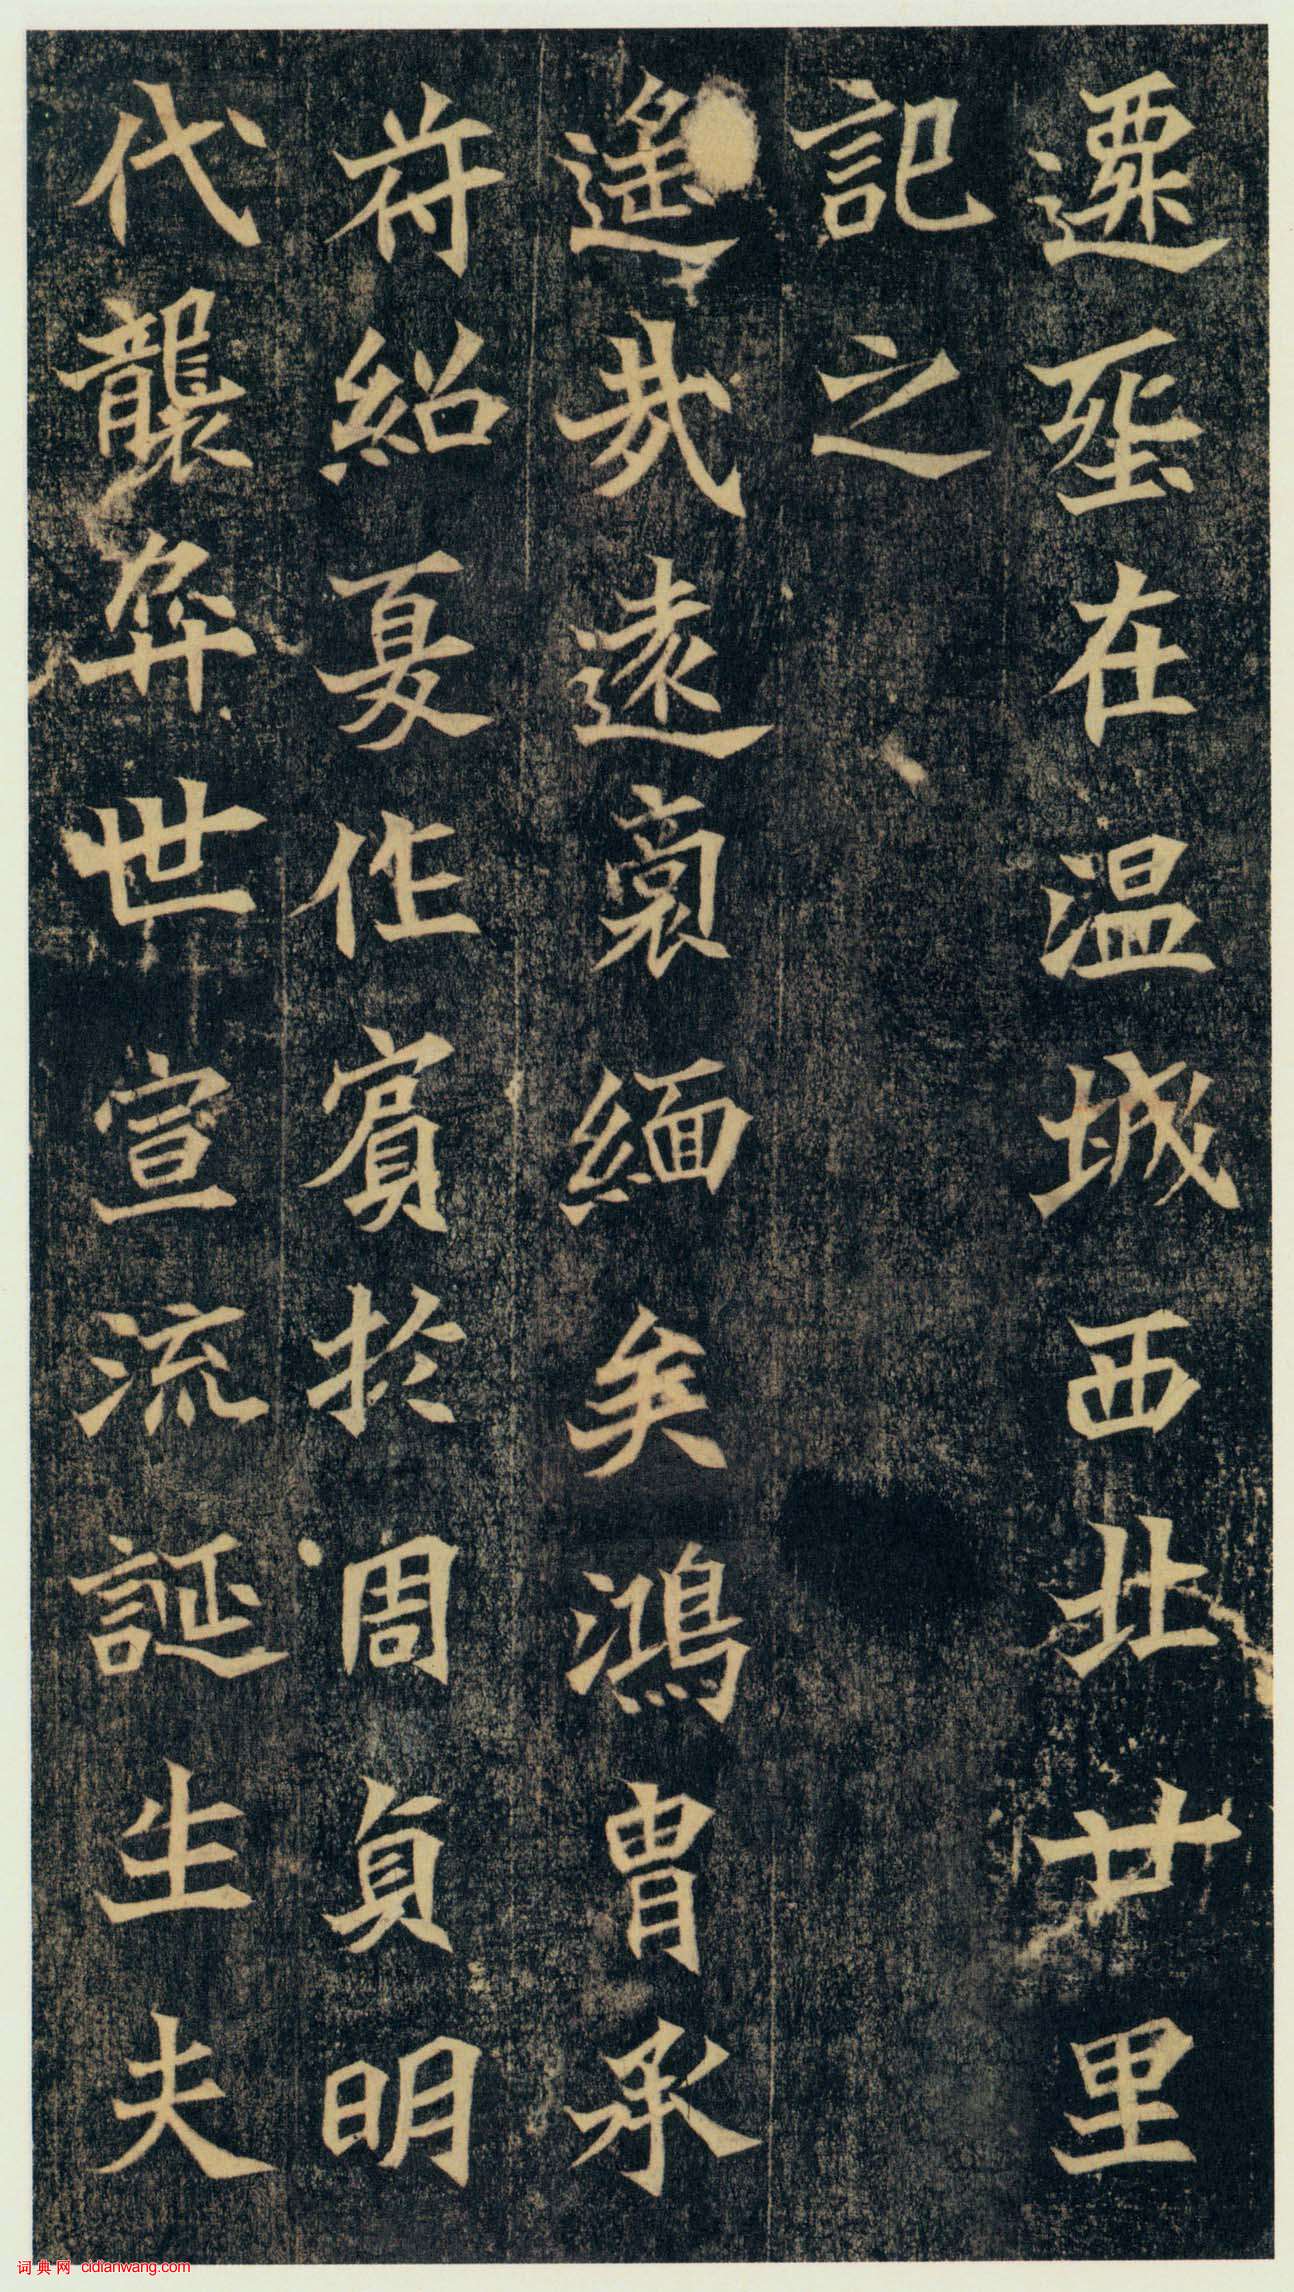 遷塟在温城西北廿里
記之
遙哉遠裔緬矣鴻胄承
符紹夏作賓於周貞明
代襲弈世宣流誕生夫
词典网 cidianwang.com